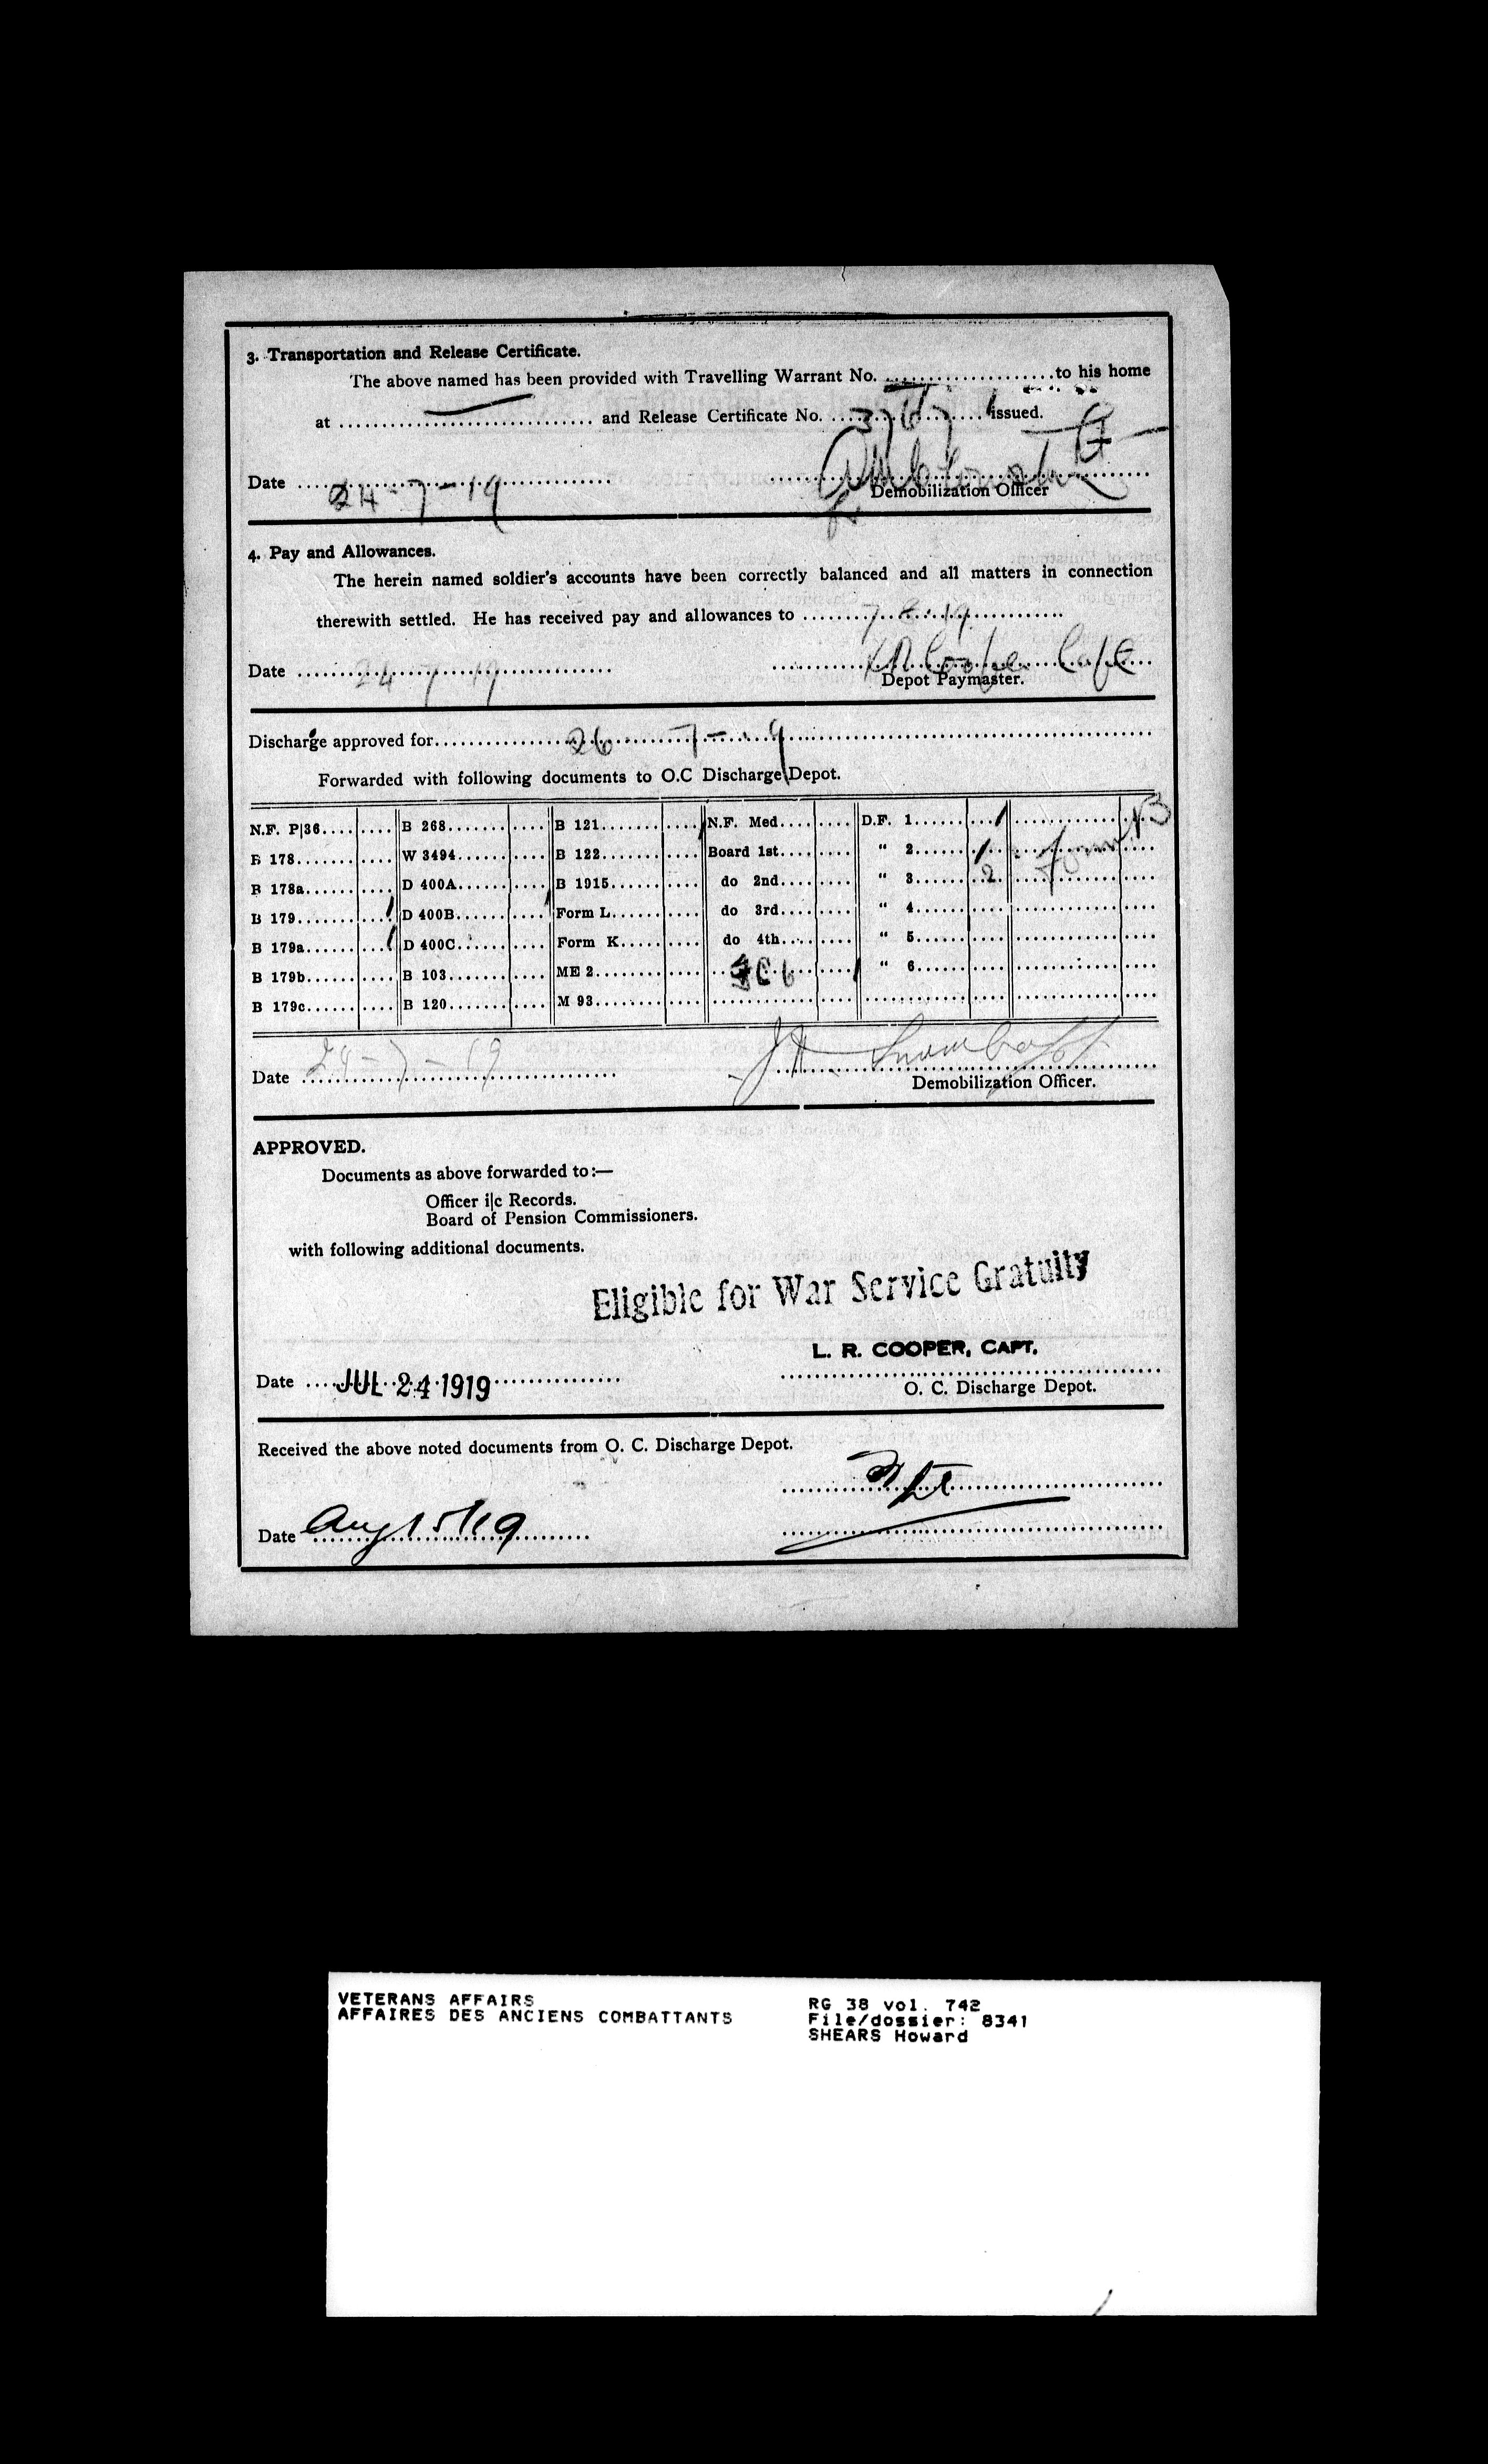 3. Transportation and Release Certificate.
The above named has been provided with Travelling Warrant No. .................... to his home
at .............................. and Release Certificate No. .................. issued.
Date 24-7-19
Demobilization Officer
4. Pay and Allowances.
The herein named soldier's accounts have been correctly balanced and all matters in connection
therewith settled. He has received pay and allowances to 7.8.19
Date 24 7 19 Capt
Depot Paymaster.
Discharge approved for 26 7-19
Forwarded with following documents to O.C Discharge Depot.
N.F. P|36 B 268 B 121 N.F. Med. D.F. 1 1
B 178 W 3494 B 122 Board 1st " 2 1
B 178a D 400A B 1915 do 2nd " 3 2
B 179 1 D 400B Form L do 3rd " 4
B 179a 1 D 400C Form K do 4th " 5
B 179b B 103 ME 2 " 6
B 179c B 120 M 93
Date 24-7-19
Demobilization Officer.
APPROVED.
Documents as above forwarded to:—
Officer i|c Records.
Board of Pension Commissioners.
with following additional documents.
Eligible for War Service Gratuity
L. R. COOPER, CAPT.
Date JUL 24 1919
O. C. Discharge Depot.
Received the above noted documents from O. C. Discharge Depot.
Date Aug 15/19
VETERANS AFFAIRS
AFFAIRES DES ANCIENS COMBATTANTS
RG 38 vol. 742
File/dossier: 8341
SHEARS Howard